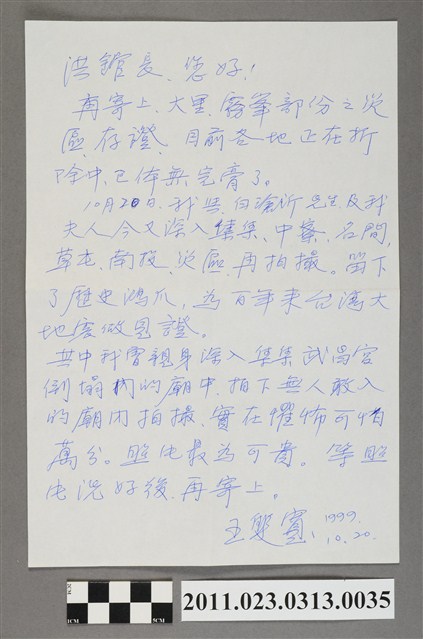 洪舘長、您好!
再寄上、大里、霧峯部份之災
區、存證、目前各地正在折
除中、已体無完膚了。
10月20日、我與、白滄沂先生及我
夫人今又深入集集、中寮、名間、
草屯、南投、災區、再拍攝。留下
了歷史鴻爪、為百年來台灣大
地震做見證。
其中我曾親身深入集集武昌宮
倒塌內的廟中、拍下無人敢入
的廟內拍攝、實在懼怖可怕
萬分。照片最為可貴。等照
片洗好後、再寄上。
王雙寬、1999.
10.20.
1CM
5CM
2011.023.0313.0035